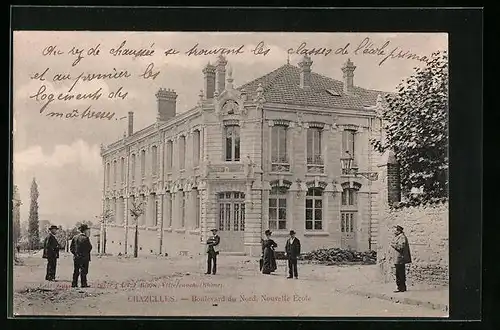 Au rez de chaussée se trouvent les classes de l'école prim
et au premier les
logements des
maîtresses.
Villefranche (Rhône)
CHAZELLES. — Boulevard du Nord, Nouvelle École